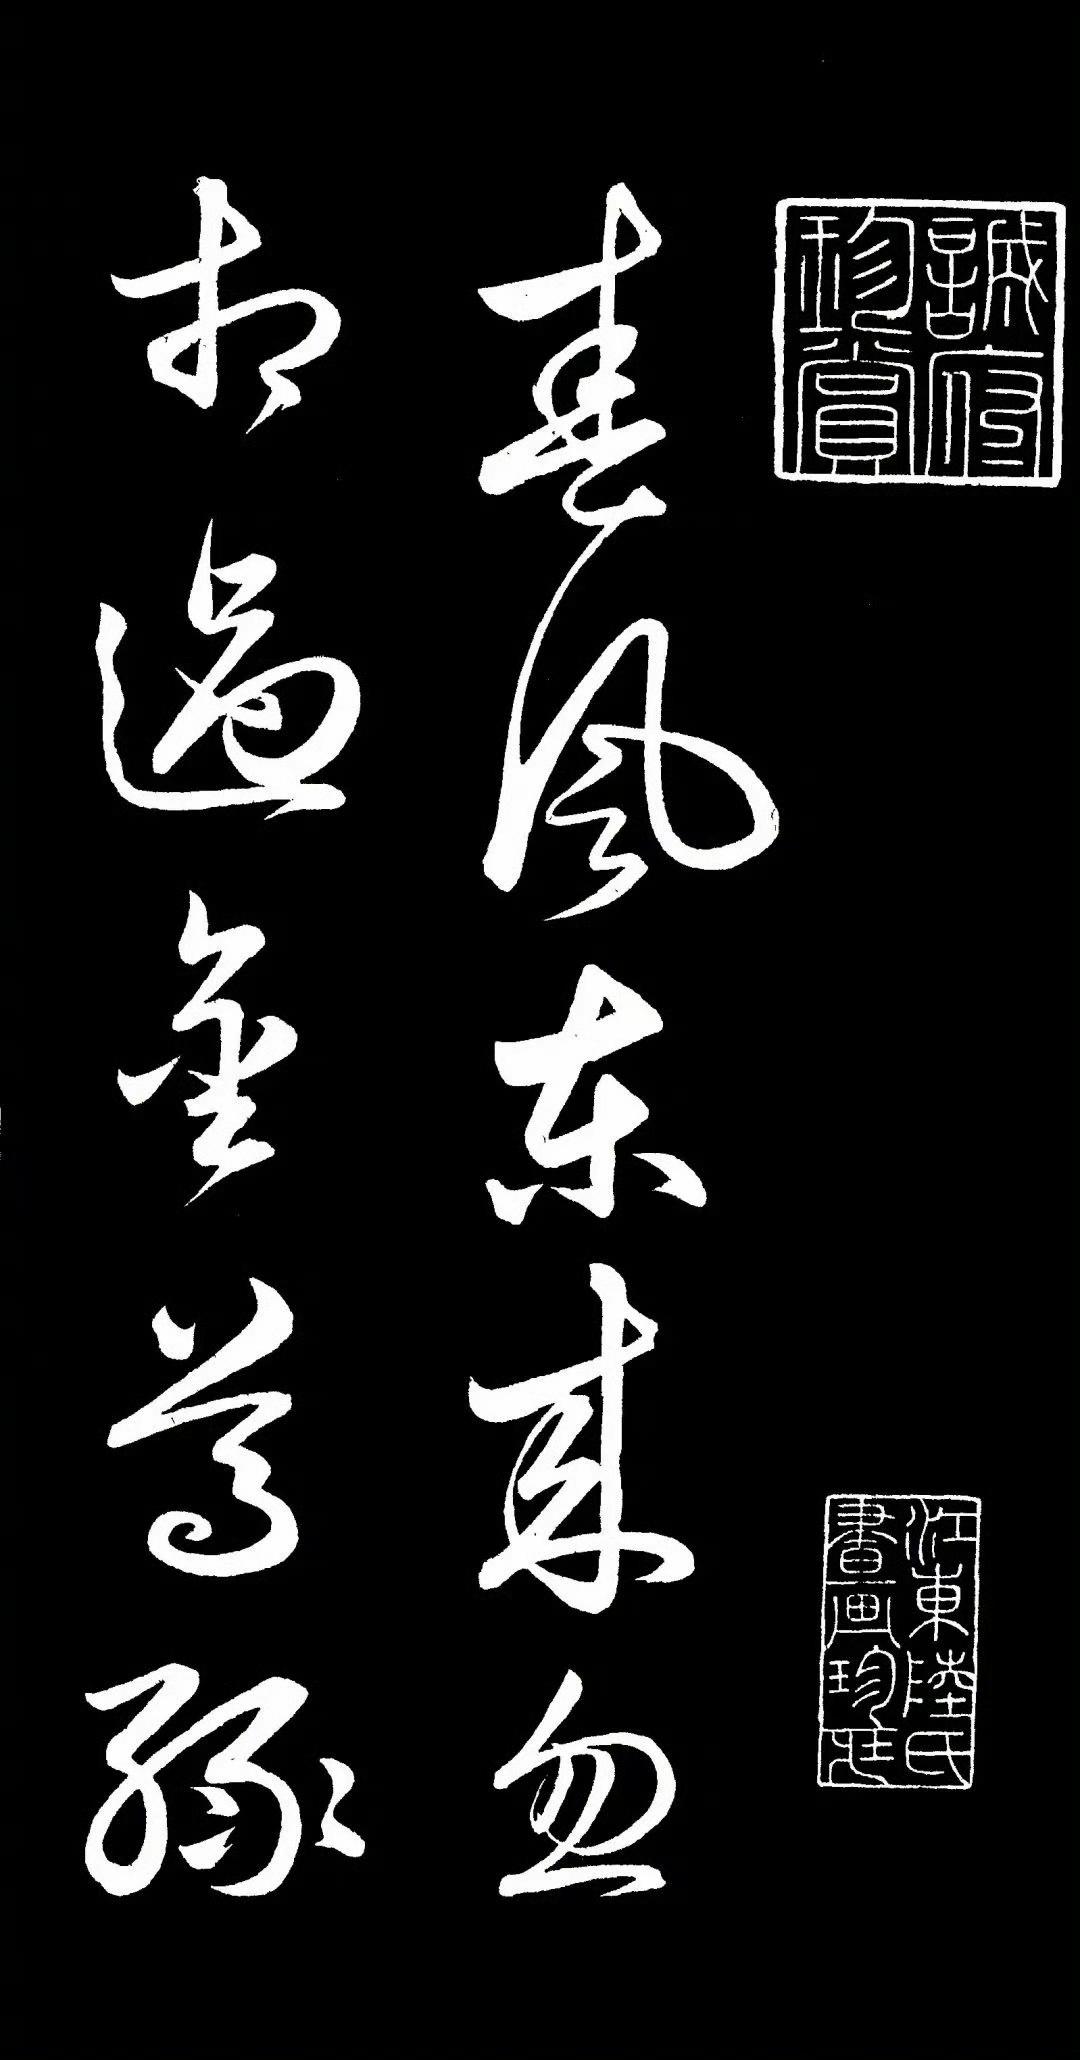 誠
珍賞
江東陸氏
書畫珍藏
春風東來忽
相過金尊綠